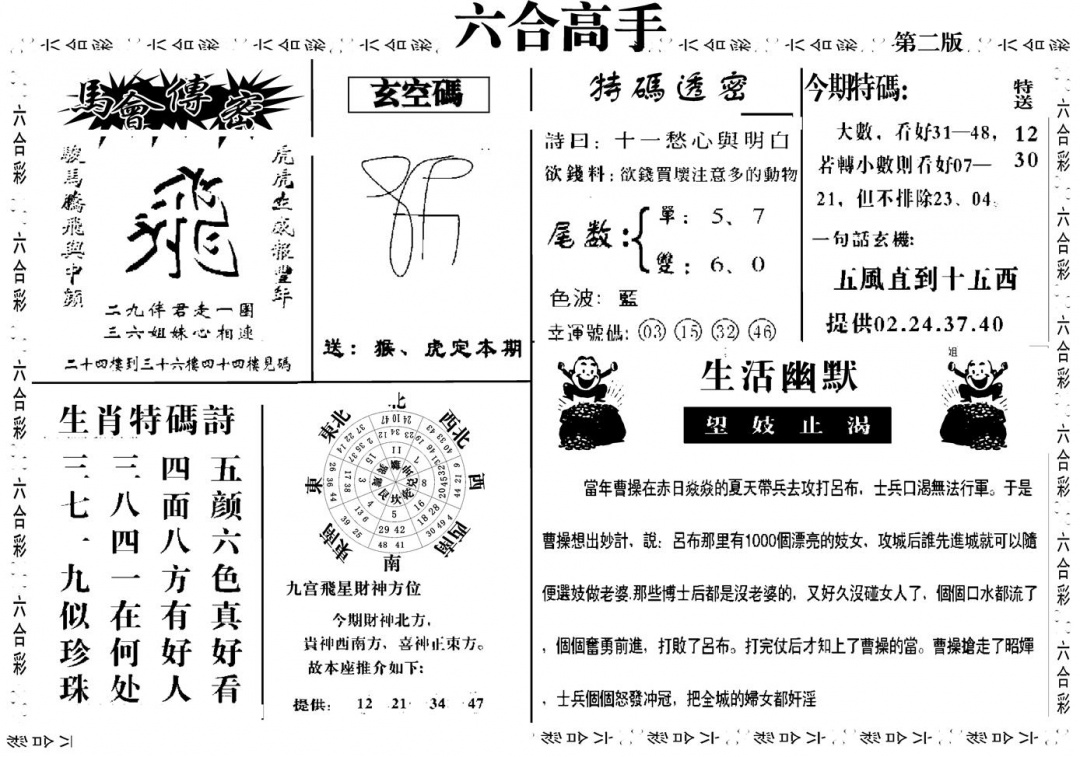 六合高手
第二版
馬會傳密
虎虎生威報豐年
飛
駿馬騰飛與中顏
二九伴君走一圈
三六姐妹心相連
二十四樓到三十六樓四十四樓見碼
玄空碼
送：猴、虎定本期
特碼透密
詩曰：十一愁心與明白
欲錢料：欲錢買壞注意多的動物
尾数：
單：5、7
雙：6、0
色波：藍
幸運號碼：03 15 32 46
今期特碼：
特送
12
30
大數，看好31—48，
若轉小數則看好07—
21，但不排除23、04.
一句話玄機：
五風直到十五西
提供02.24.37.40
生肖特碼詩
五颜六色真好看
四面八方有好人
三八四一在何处
三七一九似珍珠
北
東北
西北
東
西
東南
西南
南
九宫飛星財神方位
今期財神北方，
貴神西南方，喜神正東方。
故本座推介如下：
提供： 12 21 34 47
姐
生活幽默
望妓止渴
當年曹操在赤日焱焱的夏天帶兵去攻打呂布，士兵口渴無法行軍。于是
曹操想出妙計，説：呂布那里有1000個漂亮的妓女，攻城后誰先進城就可以隨
便選妓做老婆.那些博士后都是沒老婆的，又好久沒碰女人了，個個口水都流了
，個個奮勇前進，打敗了呂布。打完仗后才知上了曹操的當。曹操搶走了昭嬋
、士兵個個怒發冲冠，把全城的婦女都奸淫
六合彩